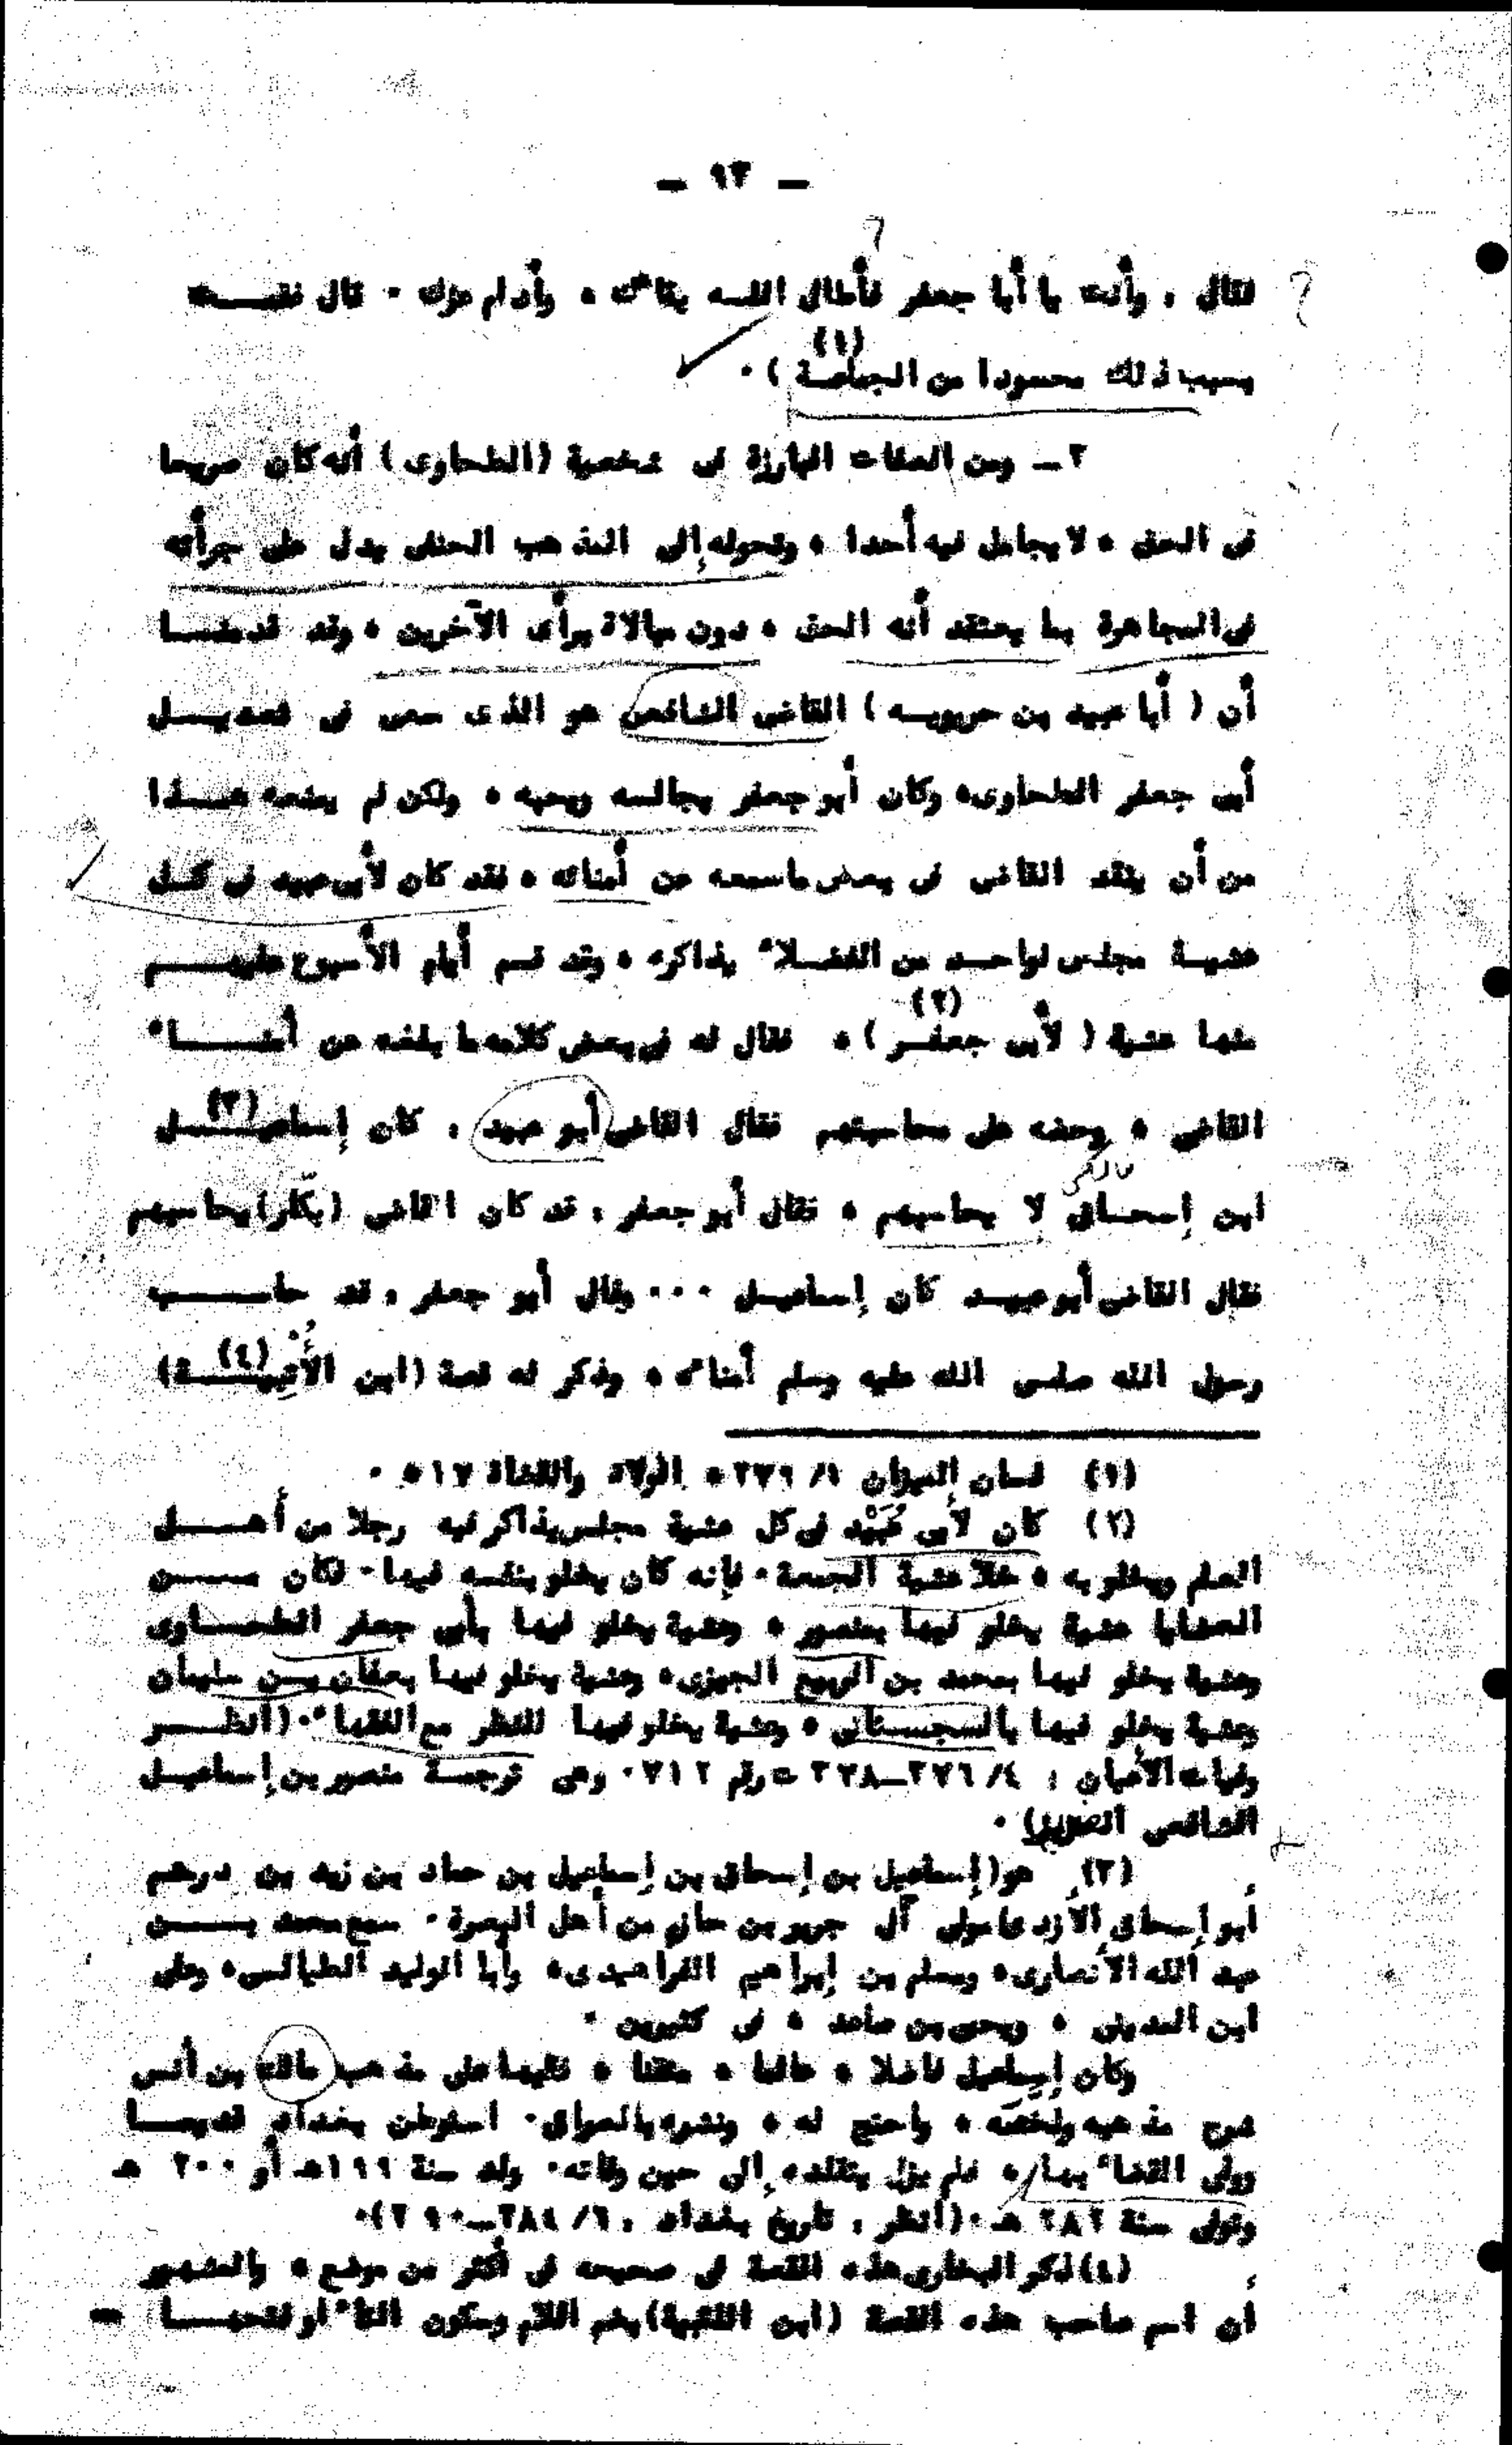 — ٩٣ —
فقال : وأنت يا أبا جعفر فأطال اللــه بقاءك ، وأدام عزك . قال فقمــت
بسبب ذلك محسودا من الجماعــة ) . (١)
٢ ــ ومن الصفات البارزة فى شخصية (الطحاوى) أنه كان صريحا
فى الحق ، لا يجامل فيه أحدا ، وتحوله إلى المذهب الحنفى يدل على جرأته
فى المجاهرة بما يعتقد أنه الحق ، دون مبالاة برأى الآخرين ، وقد قدمنــا
أن ( أبا عبيد بن حربويــه ) القاضى الشافعى هو الذى سعى فى تعديــل
أبى جعفر الطحاوى، وكان أبو جعفر يجالسه ويحبه ، ولكن لم يمنعه هــذا
من أن ينقد القاضى فى بعض ماسمعه عن أمنائه ، فقد كان لأبى عبيد فى كــل
عشيــة مجلس لواحــد من الفضــلاء يذاكره ، وقد قسم أيام الأسبوع عليهــم
منها عشية ( لأبى جعفــر ) ، (٢) فقال له فى بعض كلامه ما بلغه عن أمنــاء
القاضى ، وحضه على محاسبتهم فقال القاضى أبو عبيد : كان إسماعيــل (٣)
ابن إسحــاق لا يحاسبهم ، فقال أبو جعفر : قد كان القاضى (بكّار) يحاسبهم
فقال القاضى أبو عبيــد كان إسماعيــل ... وقال أبو جعفر : قد حاســب
رسول الله صلــى الله عليه وسلم أمناءه ، وذكر له قصة (ابن الأُتبيــة) (٤)
(١) لسان الميزان ١/ ٢٧٩ ، الولاة والقضاة ٥١٧ .
(٢) كان لأبى عُبَيْد فى كل عشية مجلس يذاكر فيه رجلا من أهــل
العلم ويخلو به ، خلا عشية الجمعة . فإنه كان يخلو بنفسه فيها . فكان مــن
العشايا عشية يخلو فيها بمنصور ، وعشية يخلو فيها بأبى جعفر الطحــاوى
وعشية يخلو فيها بمحمد بن الربيع الجيزى، وعشية يخلو فيها بعفان بــن سليمان
وعشية يخلو فيها بالسجستانى ، وعشية يخلو فيها للنظر مع الفقهاء . (انظــر
وفيات الأعيان : ٤/ ٣٧٦ــ٣٧٨ ت رقم ٧١٢ . وهى ترجمــة منصور بن إسماعيــل
الشافعى الضرير) .
(٣) هو (إسماعيل بن إسحاق بن إسماعيل بن حماد بن زيد بن درهم
أبو إسحاق الأزدى مولى آل جرير بن حازم من أهل البصرة . سمع محمد بــن
عبد الله الأنصارى، ومسلم بن إبراهيم الفراهيدى، وأبا الوليد الطيالسى، وعلى
ابن المدينى ، ويحيى بن صاعد ، فى كثيرين .
وكان إسماعيل فاضلا ، عالما ، متقنا ، فقيها على مذهب مالك بن أنس
شرح مذهبه ولخصه ، واحتج له ، ونشره بالعراق . استوطن بغداد قديمــا
وولى القضاء بها ، فلم يزل يتقلده إلى حين وفاته . ولد سنة ١٩٩هـ أو ٢٠٠ هـ
وتوفى سنة ٢٨٢ هـ . (انظر : تاريخ بغداد : ٦/ ٢٨٤ــ٢٩٠).
(٤) ذكر البخارى هذه القصة فى صحيحه فى أكثر من موضع ، والمشهور
أن اسم صاحب هذه القصة (ابن اللتبية) بضم اللام وسكون التاء أو فتحهــا —